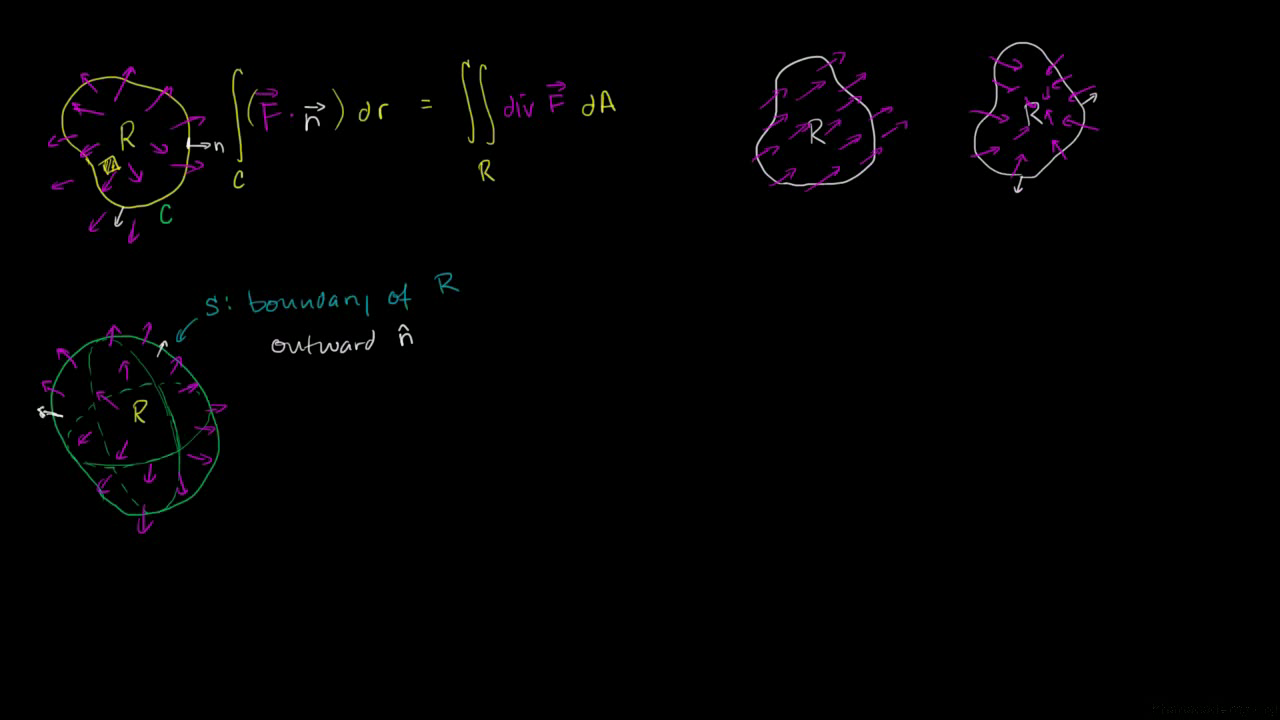 R
n
C
∫_C (F⃗ · n⃗) dr = ∬_R div F⃗ dA
R
R
S: boundary of R
outward n̂
R